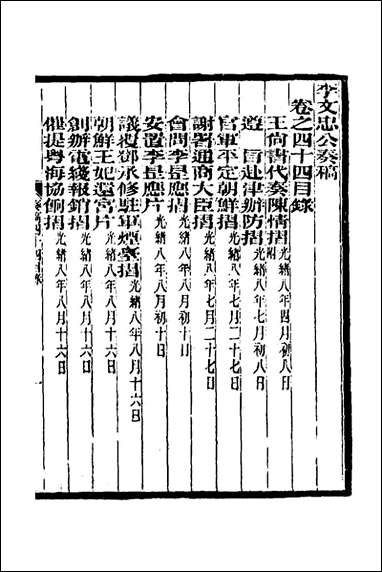 李文忠公奏稿
卷之四十四目錄
王尚書代奏陳情摺 附 光緒八年四月初八日
遵 旨赴津辦防摺 光緒八年七月初八日
官軍平定朝鮮摺 光緒八年七月二十七日
謝署通商大臣摺 光緒八年七月二十七日
會問李昰應摺 光緒八年八月初十日
安置李昰應片 光緒八年八月初十日
議覆鄧承修駐軍煙臺摺 光緒八年八月十六日
朝鮮王妃還宮片 光緒八年八月十六日
創辦電綫報銷摺 光緒八年八月十六日
催提粵海協餉摺 光緒八年八月十六日